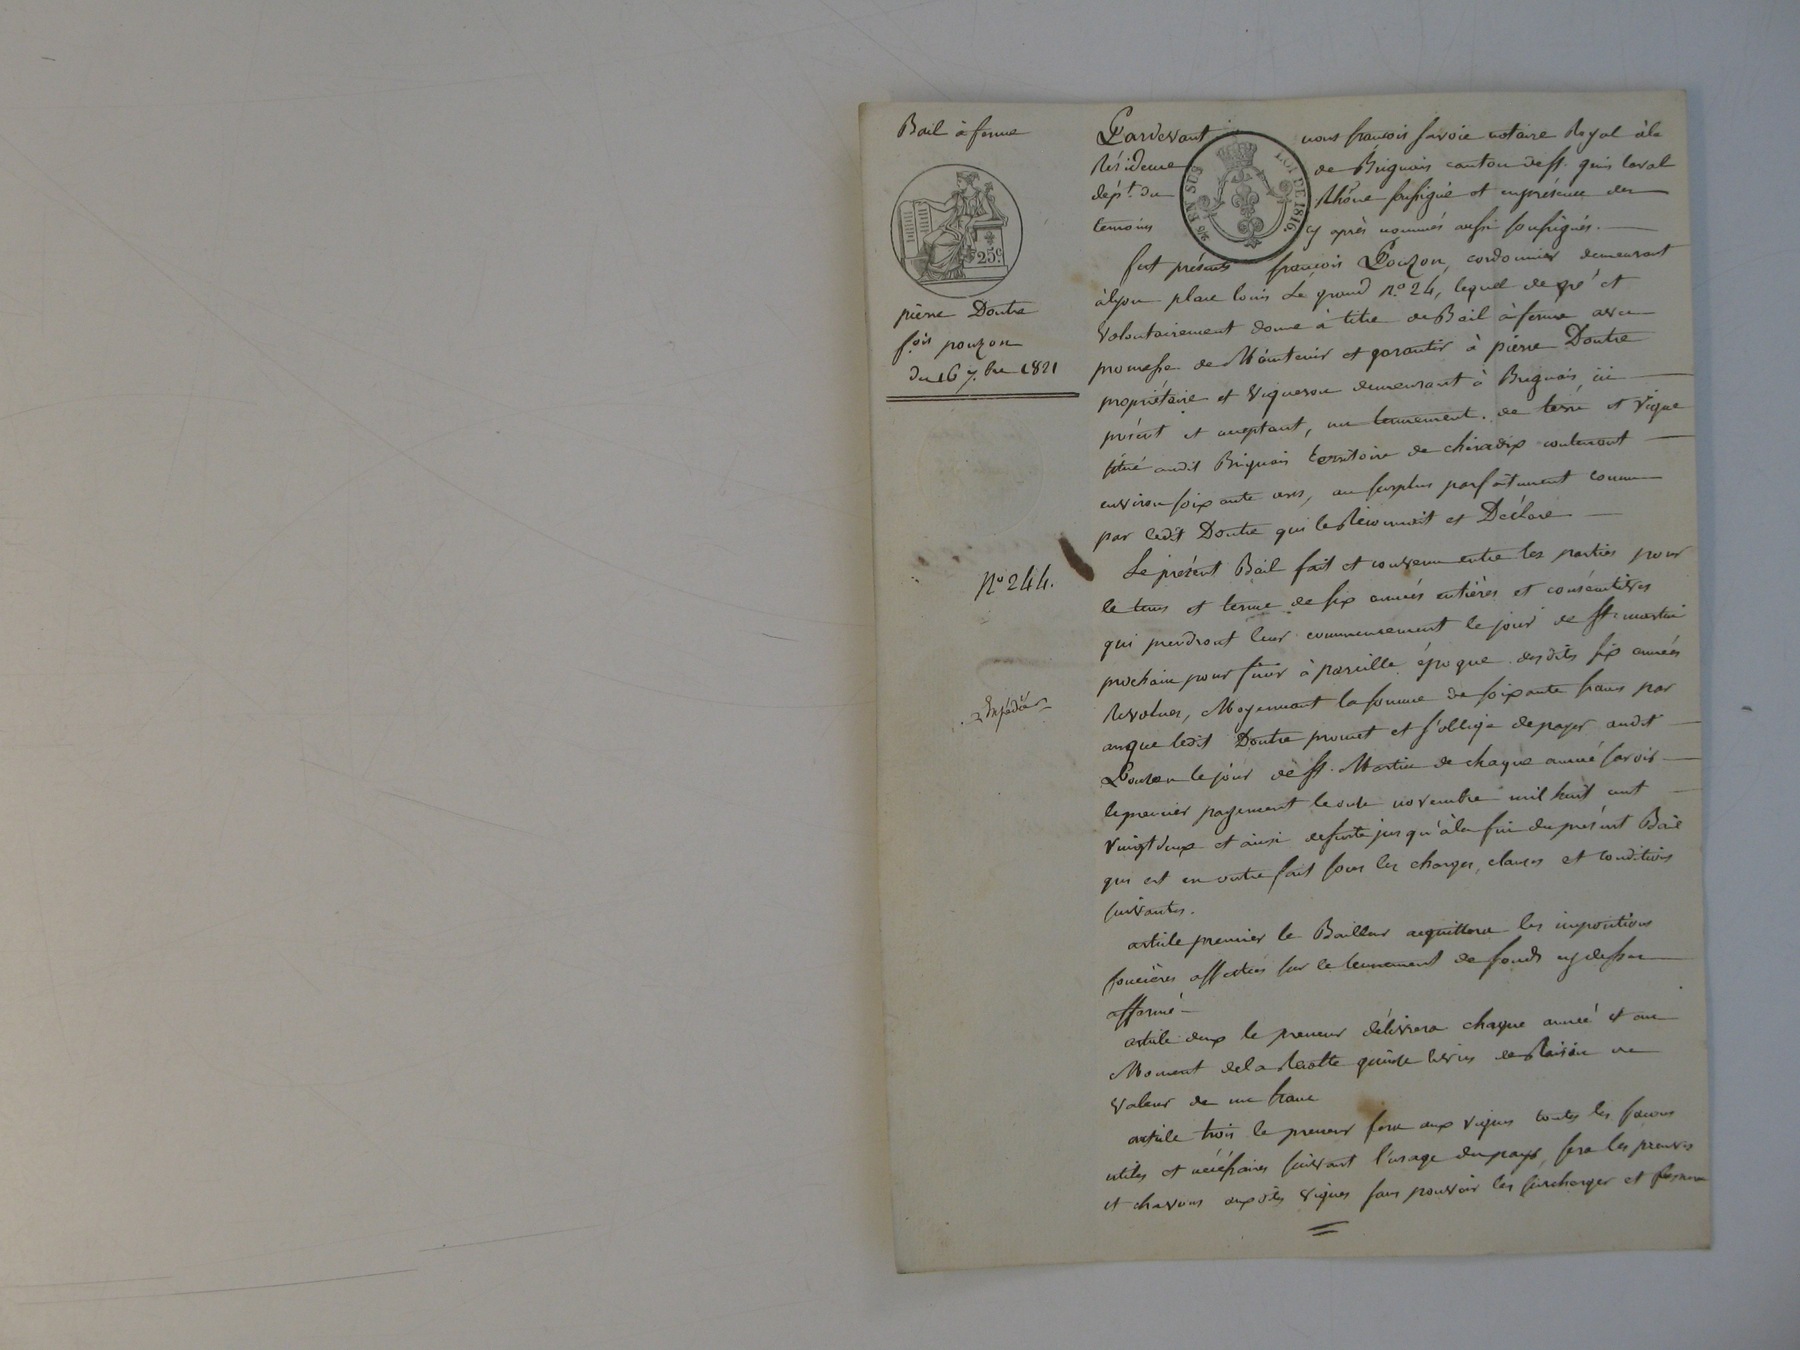 Bail à ferme
25c
pierre Doutre
f.ois pouzon
du 16 7.bre 1821
N° 244.
Expédié
25 EN SUS
LOI DE 1816.
Pardevant nous francois savoie notaire Royal à la
Résidence de Brignais canton de st. genis laval
dépt. du Rhône soussigné et en présence des
temoins cy après nommés aussi soussignés.
fut présent francois Pouzon, cordonnier demeurant
à lyon place louis Le grand n.° 24, lequel de gré et
volontairement donne à titre de Bail à ferme avec
promesse de Maintenir et garantir à pierre Doutre
propriétaire et vigneron demeurant à Brignais, ici
présent et acceptant, un tennement de terre et vigne
situé audit Brignais territoire de contenant
environ soixante ares, au surplus parfaitement connu
par ledit Doutre qui le Reconnoit et Déclare
Le présent Bail fait et convenu entre les parties pour
le tems et terme de six années entières et consécutives
qui prendront leur commencement le jour de st. martin
prochain pour finir à pareille époque desdites six années
Revolues, Moyennant la somme de soixante francs par
an que ledit Doutre promet et s'oblige de payer audit
Pouzon le jour de st. Martin de chaque année savoir
le premier payement le onze novembre mil huit cent
vingt deux et ainsi de suite jusqu'à la fin du présent Bail
qui est en outre fait sous les charges, clauses et conditions
suivantes.
article premier le Bailleur acquittera les impositions
foncières affectées sur le tennement de fonds cy dessus
affermé
article deux le preneur délivrera chaque année et au
Moment de la Recolte quinze livres de Raisin
valeur de un franc
article trois le preneur fera aux vignes toutes les facons
utiles et nécéssaires suivant l'usage du pays, fera les preuves
et chavons auxdites vignes sans pouvoir les surcharger et